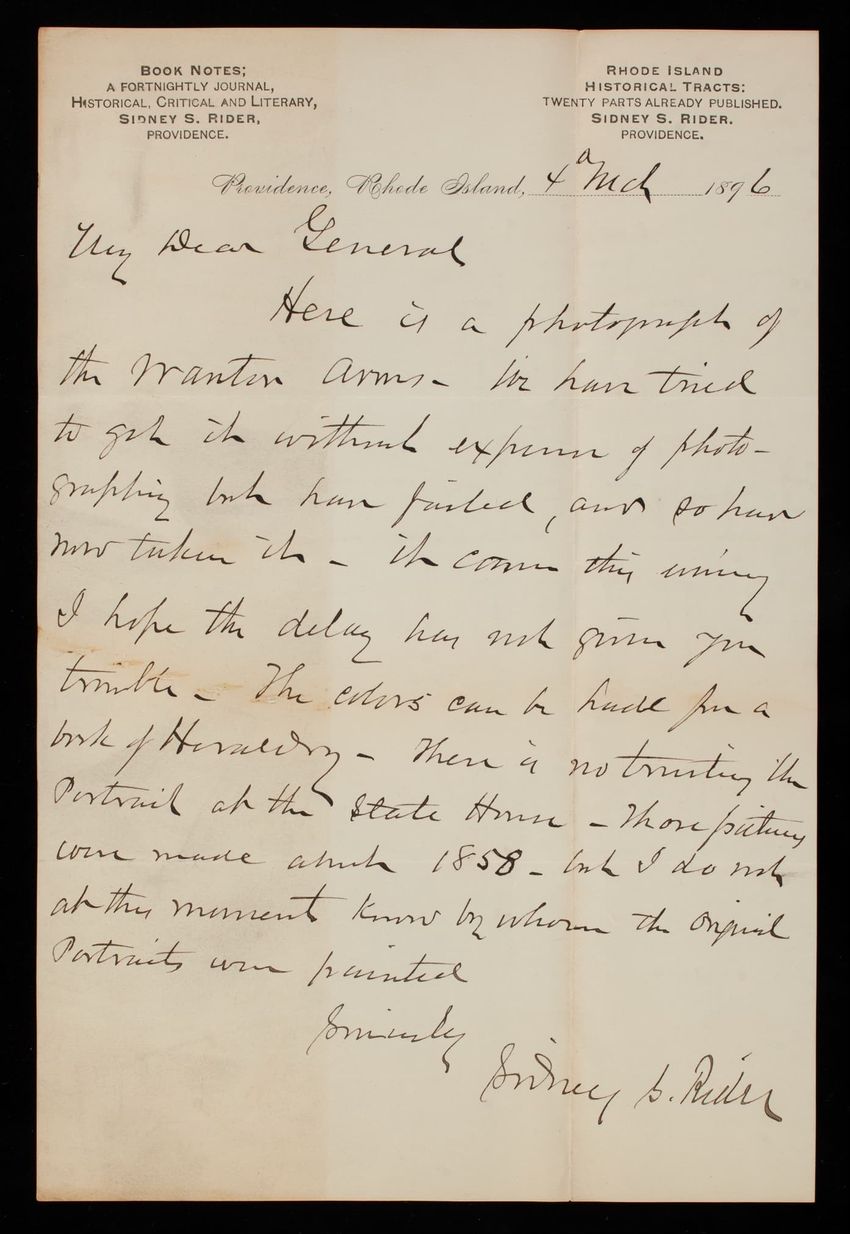 BOOK NOTES;
A FORTNIGHTLY JOURNAL,
HISTORICAL, CRITICAL AND LITERARY,
SIDNEY S. RIDER,
PROVIDENCE.
RHODE ISLAND
HISTORICAL TRACTS:
TWENTY PARTS ALREADY PUBLISHED.
SIDNEY S. RIDER.
PROVIDENCE.
Providence, Rhode Island, 4 Mch 1896
My Dear General
Here is a photograph of
the Wanton Arms - We have tried
to get it without expense of photo-
graphing but have failed, and so have
now taken it - it comes this evening
I hope the delay has not given you
trouble - The colors can be had for a
book of Heraldry - There is no trusting the
Portrait at the State House - Those pictures
were made about 1858 - but I do not
at this moment know by whom the original
Portraits were painted
Sincerely
Sidney S. Rider